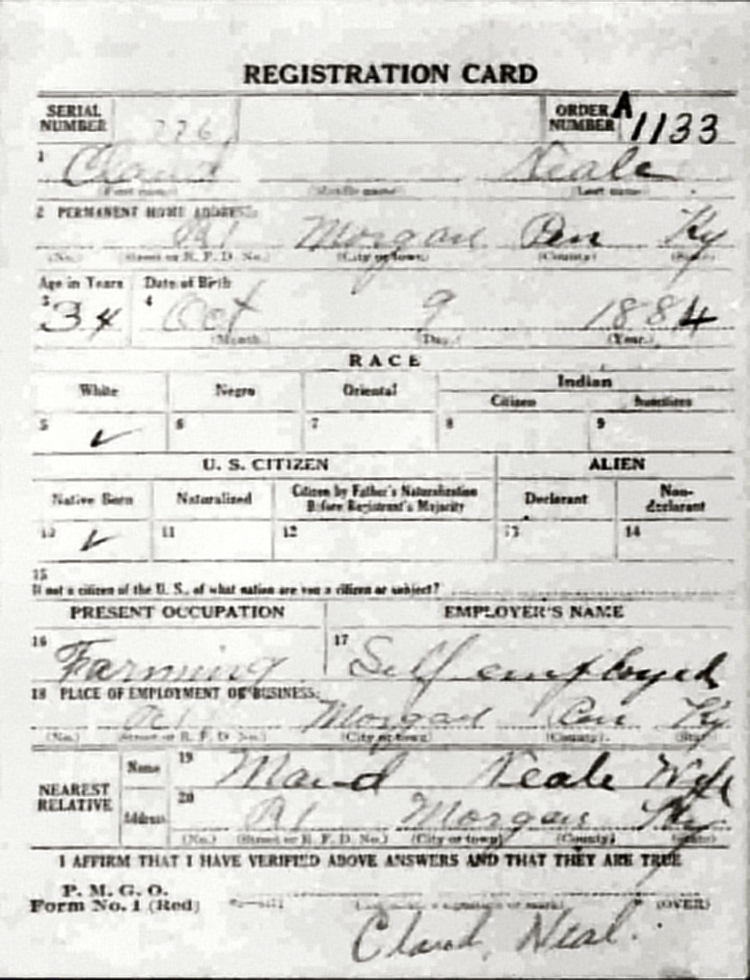 REGISTRATION CARD
SERIAL NUMBER 226 ORDER NUMBER A 1133
1 Claud Neale
(First name) (Middle name) (Last name)
2 PERMANENT HOME ADDRESS:
R1 Morgan Pen Ky
(No.) (Street or R. F. D. No.) (City or town) (County) (State)
Age in Years Date of Birth
3 34 4 Oct 9 1884
(Month.) (Day.) (Year.)
RACE
White Negro Oriental Indian
Citizen Noncitizen
5 ✓ 6 7 8 9
U. S. CITIZEN ALIEN
Native Born Naturalized Citizen by Father's Naturalization Before Registrant's Majority Declarant Non-declarant
10 ✓ 11 12 13 14
15
If not a citizen of the U. S., of what nation are you a citizen or subject?
PRESENT OCCUPATION EMPLOYER'S NAME
16 Farming 17 Self employed
18 PLACE OF EMPLOYMENT OR BUSINESS:
R1 Morgan Pen Ky
(No.) (Street or R. F. D. No.) (City or town) (County) (State)
NEAREST RELATIVE
Name 19 Maud Neale Wife
Address 20 R1 Morgan Ky
(No.) (Street or R. F. D. No.) (City or town) (County) (State)
I AFFIRM THAT I HAVE VERIFIED ABOVE ANSWERS AND THAT THEY ARE TRUE
P. M. G. O.
Form No. 1 (Red) (Registrant's signature or mark) (OVER)
Claud Neal.